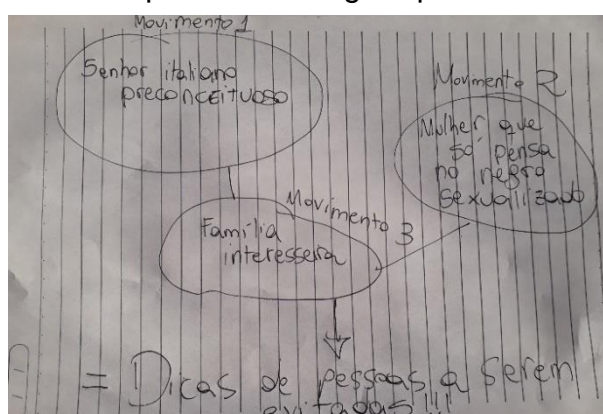 Movimento 1
Senhor italiano
preconceituoso
Movimento 2
Mulher que
só pensa
no negro
sexualizado
Movimento 3
Família
interesseira
= Dicas de pessoas a serem
evitadas!!!